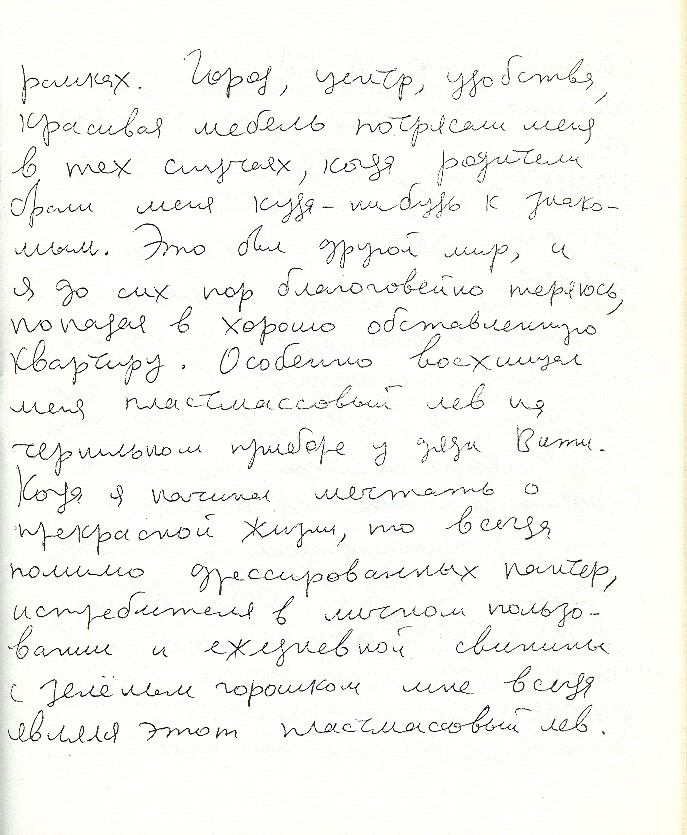 рамках. Город, центр, удобства,
красивая мебель потрясали меня
в тех случаях, когда родители
брали меня куда-нибудь к знако-
мым. Это был другой мир, и
я до сих пор благоговейно теряюсь,
попадая в хорошо обставленную
квартиру. Особенно восхищал
меня пластмассовый лев на
чернильном приборе у дяди Вити.
Когда я начинал мечтать о
прекрасной жизни, то всегда
помимо дрессированных пантер,
истребителя в личном пользо-
вании и ежедневной свинины
с зелёным горошком мне всегда
являлся этот пластмассовый лев.